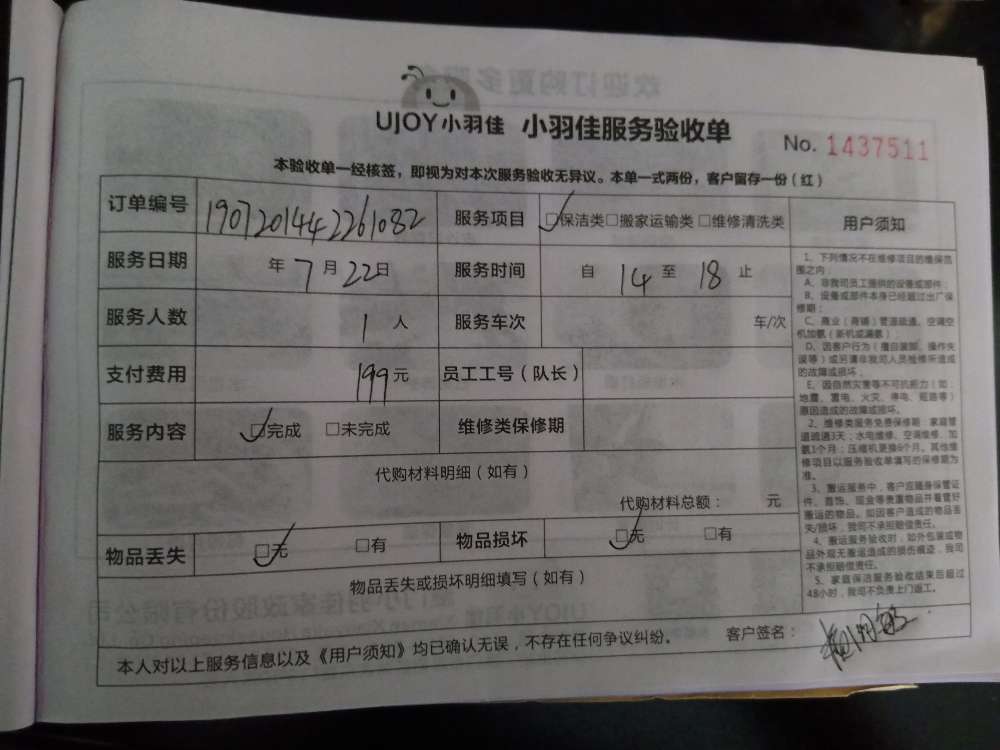 UJOY小羽佳 小羽佳服务验收单
No. 1437511
本验收单一经核签，即视为对本次服务验收无异议。本单一式两份，客户留存一份（红）
订单编号 1907201442261082 服务项目 □保洁类□搬家运输类□维修清洗类
服务日期 年 7 月 22 日 服务时间 自 14 至 18 止
服务人数 1 人 服务车次 车/次
支付费用 199元 员工工号（队长）
服务内容 □完成 □未完成 维修类保修期
代购材料明细（如有）
代购材料总额： 元
物品丢失 □无 □有 物品损坏 □无 □有
物品丢失或损坏明细填写（如有）
本人对以上服务信息以及《用户须知》均已确认无误，不存在任何争议纠纷。 客户签名：
用户须知
1、下列情况不在维修项目的维保范
围之内：
A、非我司员工提供的设备或部件；
B、设备或部件本身已经超过出厂保
修期；
C、商业（商铺）管道疏通、空调空
机加氨（新机或漏氨）
D、因客户行为（擅自装卸、操作失
误等）或另请非我司人员检修所造成
的故障或损坏；
E、因自然灾害等不可抗拒力（如：
地震、雷电、火灾、停电、短路等）
原因造成的故障或损坏。
2、维修类服务免费保修期：家庭管
道疏通3天；水电维修、空调维修、加
氨1个月；压缩机更换6个月。其他维
修项目以服务验收单填写的保修期为
准。
3、搬运服务中，客户应随身保管证
件、首饰、现金等贵重物品并看管好
搬运的物品。如因客户造成的物品丢
失/损坏，我司不承担赔偿责任。
4、搬运服务验收时，如外包装或物
品外观无搬运造成的损伤痕迹，我司
不承担赔偿责任。
5、家庭保洁服务验收结束后超过
48小时，我司不负责上门返工。